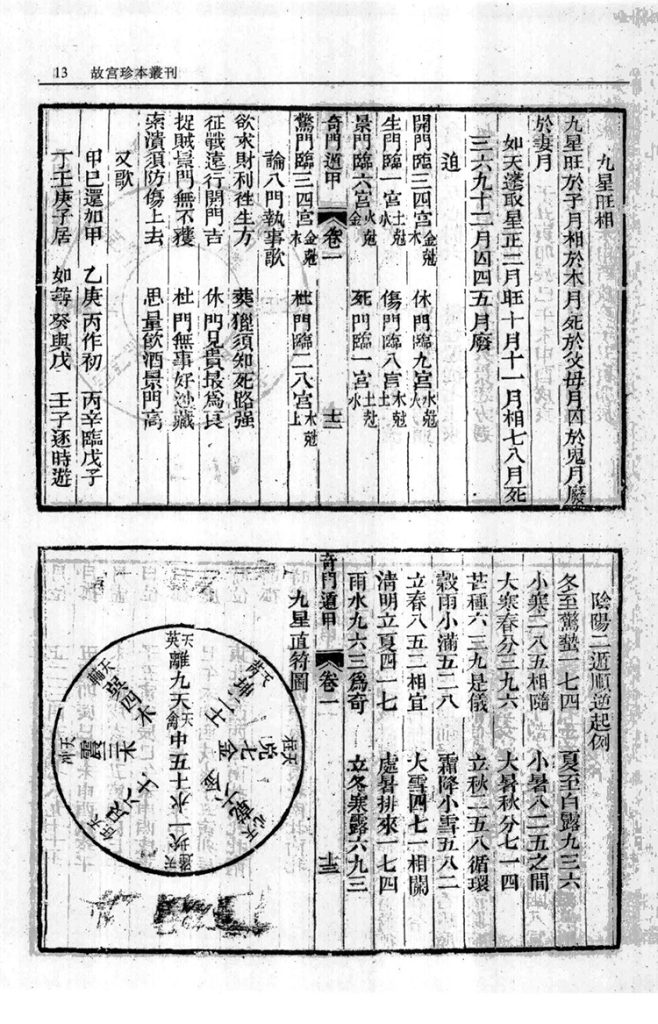 13 故宮珍本叢刊
九星旺相
九星旺於子月相於木月死於父母月囚於鬼月廢
於妻月
如天蓬取星正二月旺十月十一月相七八月死
三六九十二月囚四五月廢
迫
開門臨三四宮金尅木 休門臨九宮水尅火
生門臨一宮土尅水 傷門臨八宮木尅土
景門臨六宮火尅金 死門臨一宮土尅水
奇門遁甲 卷一 十二
驚門臨三四宮金尅木 杜門臨二八宮木尅土
論八門執事歌
欲求財利徃生方 葬獵須知死路强
征戰遠行開門吉 休門見貴最爲良
捉賊景門無不獲 杜門無事好沙藏
索債須防傷上去 思量飲酒景門高
又歌
甲巳還加甲 乙庚丙作初 丙辛臨戊子
丁壬庚子居 如尋癸與戊 壬子逐時遊
陰陽二遁順逆起例
冬至驚蟄一七四 夏至白露九三六
小寒二八五相隨 小暑八二五之間
大寒春分三九六 大暑秋分七一四
芒種六三九是儀 立秋二五八循環
穀雨小滿五二八 霜降小雪五八二
立春八五二相宜 大雪四七一相關
清明立夏四一七 處暑排來一七四
雨水九六三爲奇 立冬寒露六九三
奇門遁甲 卷一 十三
九星直符圖
天英 離九
天芮 坤二土
天柱 兌七金
天心 乾六
天蓬 坎一水
天任 艮八土
震三木
天輔 巽四木
天禽 中五土